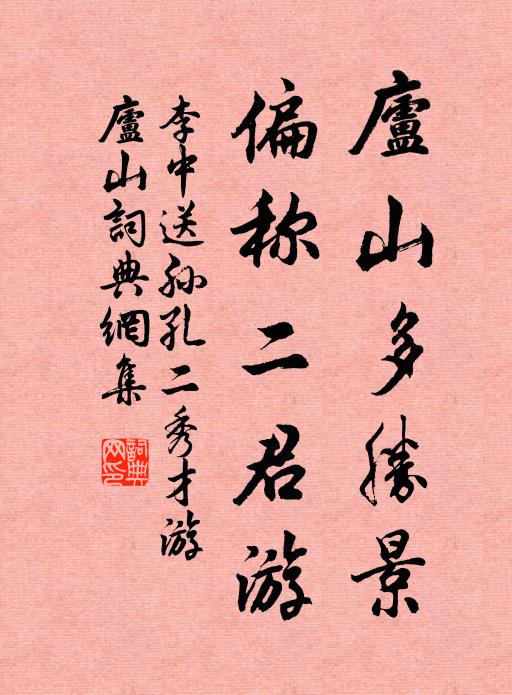 廬山多勝景
偏称二君游
李中送孙孔二秀才游
廬山詞典網集
詞典
网印